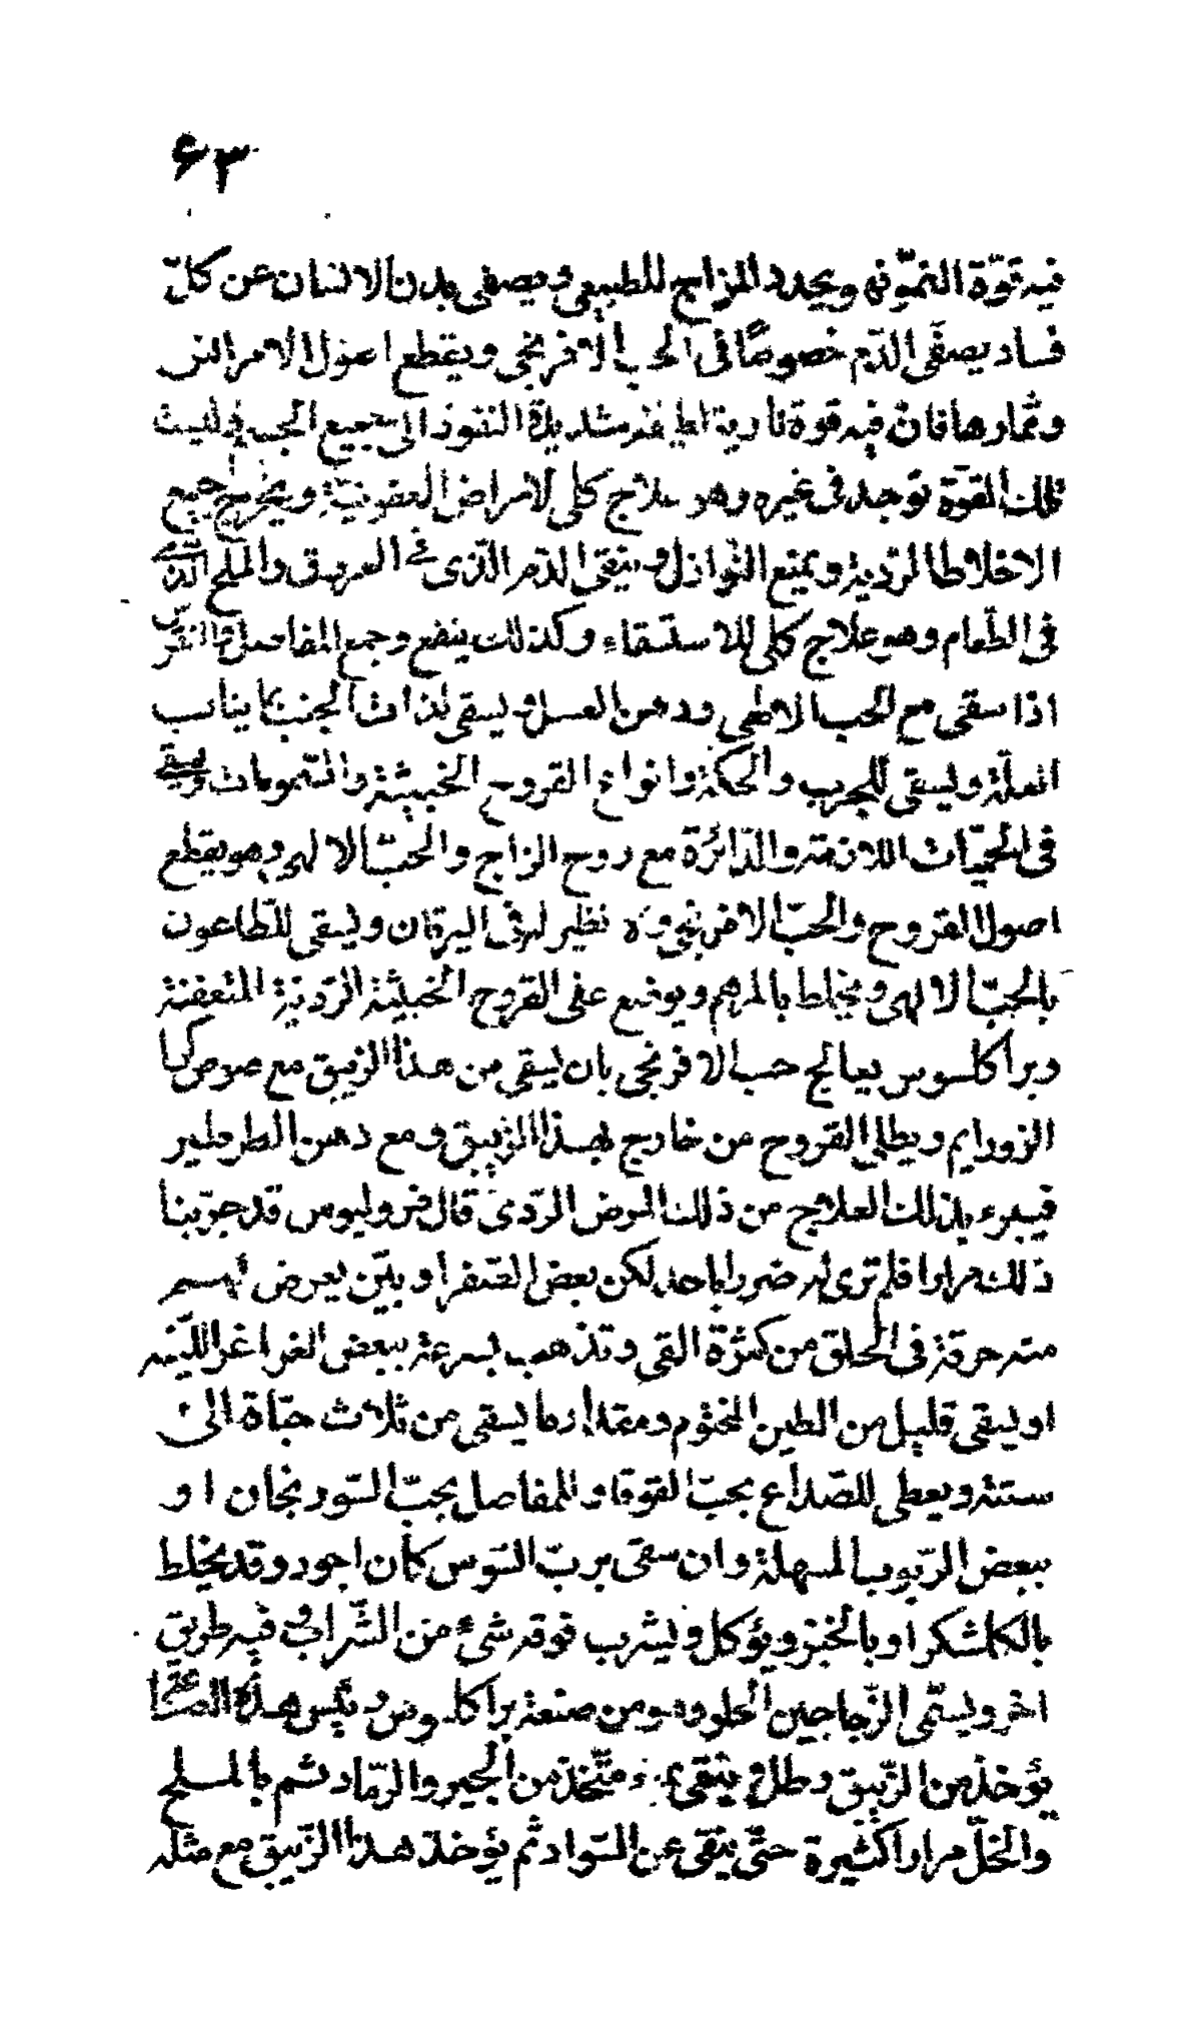 ۶۳
فيه قوّة النموّ فهو يجدد المزاج للطبيعي ويصفى بدن الانسان عن كلّ
فساد يصفّى الدّم خصوصًا فى الحب الافرنجى ويقطع اصول الامراض
وثمارها فانّ فيه قوة نارية لطيفة شديدة النفوذ الى جميع الجسد وليست
تلك القوّة توجد فى غيره وهو علاج كلى لامراض العفونيّة ويخرج جميع
الاخلاط الرّديّة ويمنع النّوازل وينقى الدّم الّذى فى العروق والملح الّذى
فى الطّعام وهو علاج كلى للاستسقاء وكذلك ينفع وجع المفاصل والنقرس
اذا سقى مع الحب الالهى ودهن العسل ويسقى لذات الجنب بما يناسب
العلّة ويسقى للجرب والحكة وانواع القروح الخبيثة والسّمومات ويسقى
فى الحميّات اللازمة والدّائرة مع روح الزاج والحبّ الالهى وهو يقطع
اصول القروح والحبّ الافرنجى ولا نظير له فى اليرقان ويسقى للطّاعون
بالحبّ الالهى ويخلط بالمرهم ويوضع على القروح الخبيثة الرّديّة المتعفنة
وبراكلسوس يعالج حب الافرنجى بان يسقى من هذا الزيبق مع
ويطلى القروح من خارج بهذا الزيبق ومع دهن الطرطير
فيبرء بذلك العلاج من ذلك المرض الرّدى قال قروليوس قد جرّبنا
ذلك مرارا فلم ترى له ضررا باحد لكن بعض الصّفراويّين يعرض لهم
منه حرقة فى الحلق من كثرة القى وتذهب بسرعة ببعض الغراغر اللّينه
او يسقى قليل من الطين المختوم ومقدار ما يسقى من ثلاث حبّاة الى
ستة ويعطى للصّداع بحبّ القوقا وللمفاصل بحبّ السّورنجان او
ببعض الرّبوب المسهلة وان سقى بربّ السّوس كان اجود وقد يخلط
بالكلشكر او بالخبز ويؤكل ويشرب فوقه شئ من الشّراب وفيه طريق
اخر ويسمّى الزّجاجين الحلو وهو من صنعة براكلسوس
يؤخذ من الزّيبق رطل وينقى بماء متّخذ من الجير والرّماد ثم بالملح
والخلّ مرارا كثيرة حتّى ينقى عن السّواد ثم يؤخذ هذا الزّيبق مع مثله